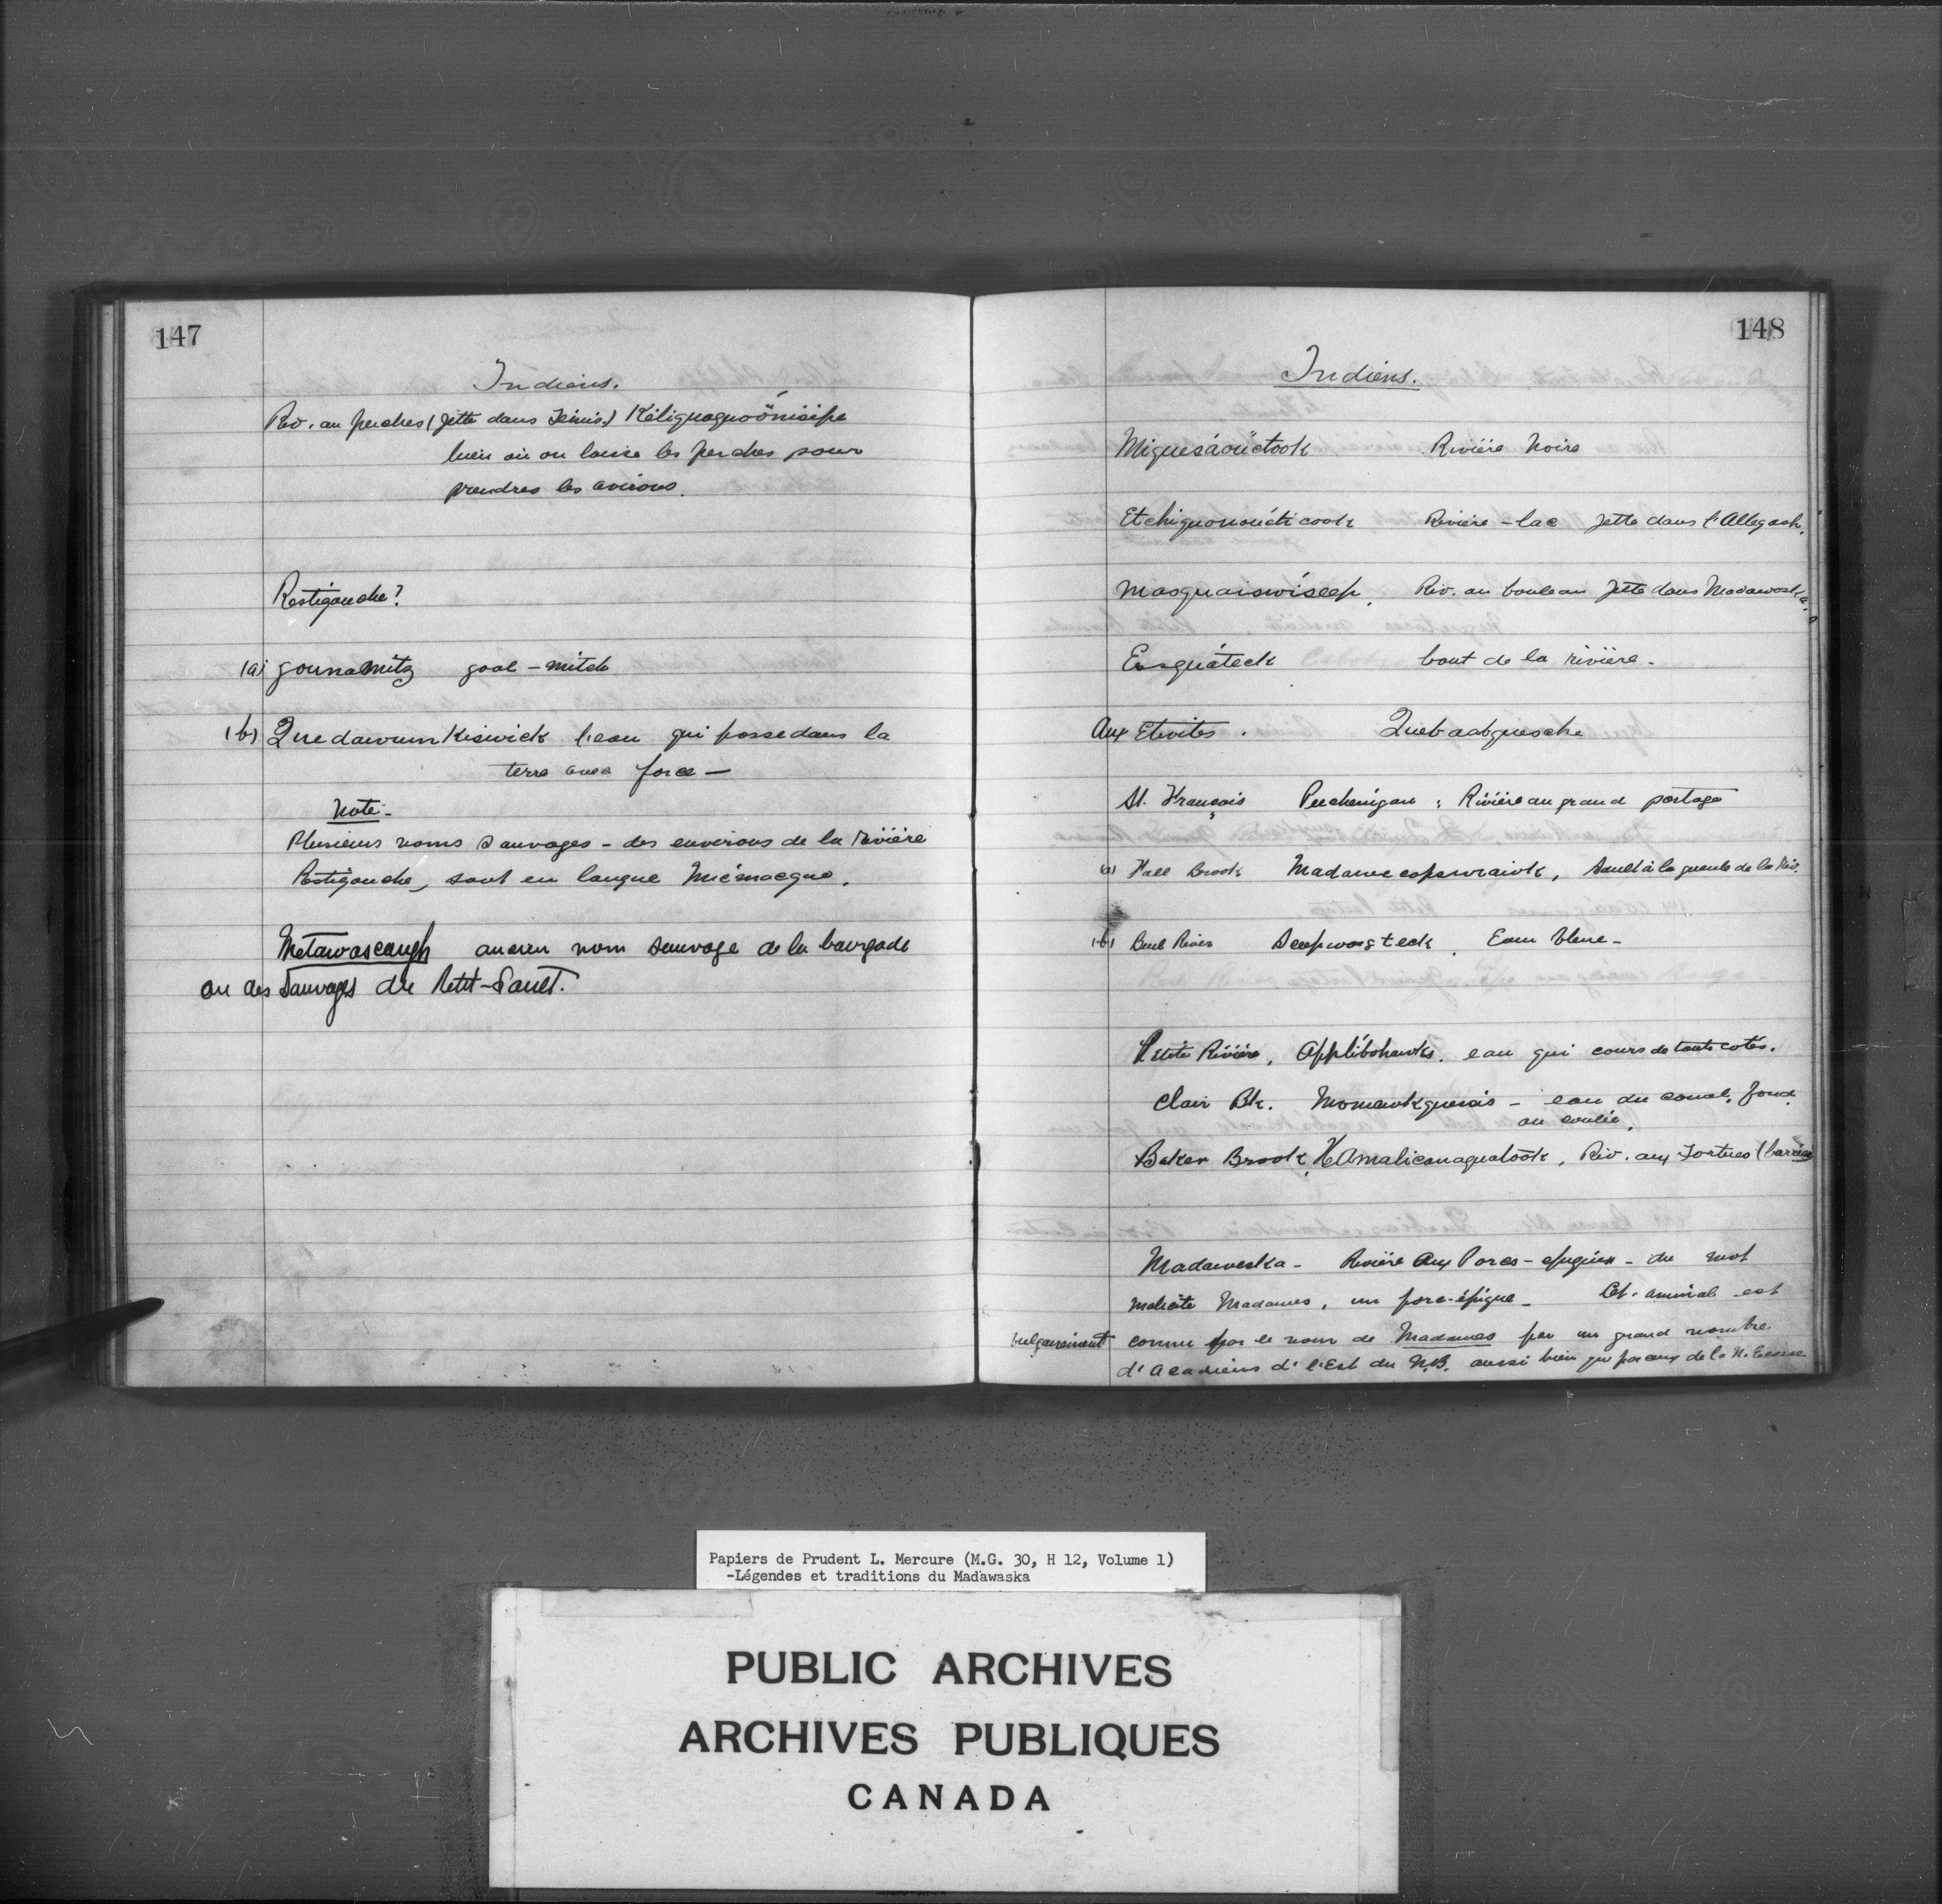 147
Indiens.
Riv. au perches (jette dans Témis.) Kéliguaguoönisipe
lieu où on laisse les perches pour
prendres les avirons.
Restigouche?
(a) gounamitz gool-mitch
(b) Quedawumkiswick l'eau qui passe dans la
terre avec force —
Note-
Plusieurs noms Sauvages - des environs de la Rivière
Restigouche, sont en langue Micmacque.
Metawascaugh ancien nom sauvage de la bourgade
ou des Sauvages du Petit-Sault.
148
Indiens.
Miguesáoüctook Rivière Noire
Etchiguonouéticook Rivière-lac jette dans l'Allegash.
Masquaiswiseep, Riv. au bouleau jette dans Madawaska.
Ersquáteck bout de la rivière.
Aux Etroites. Quebaabguesche
St. François Peechenigan: Rivière au grand portage
(a) Hall Brook Madawecopswraiok, Sault à la gueule de la Riv.
(b) Blue River Seepwosgteck. Eau bleue-
Petite Rivière, Applibohawks. eau qui cours de touts cotés.
Clair Bk. Momawkguesis - eau du canal, fond
ou coulée.
Baker Brook, HAmalicanaguatook, Riv. aux Tortues (barrées)
Madaweska - Rivière Aux Porcs-epiques - du mot
malicite Madawes, un porc-épique - Cet animal est
vulgairement connu par le nom de Madawes par un grand nombre
d'Acadiens d'l'Est du N.B. aussi bien que par ceux de la N. Ecosse
Papiers de Prudent L. Mercure (M.G. 30, H 12, Volume 1)
-Légendes et traditions du Madawaska
PUBLIC ARCHIVES
ARCHIVES PUBLIQUES
CANADA